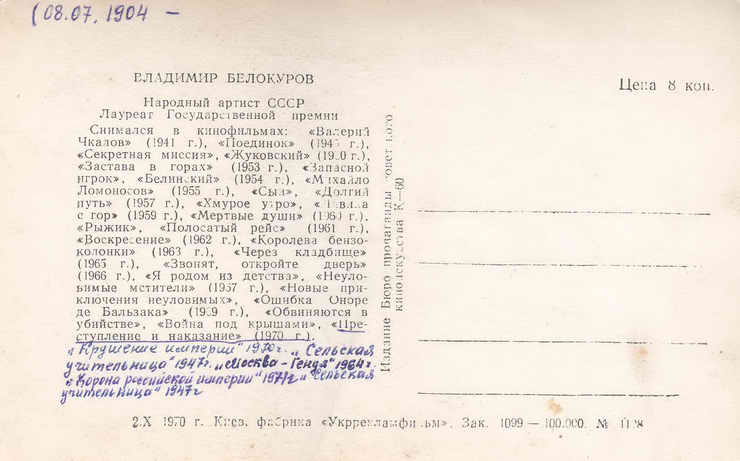 (08.07.1904 –
ВЛАДИМИР БЕЛОКУРОВ
Народный артист СССР
Лауреат Государственной премии
Снимался в кинофильмах: «Валерий
Чкалов» (1941 г.), «Поединок» (194
«Секретная миссия», «Жуковский» (19 0 г.),
«Застава в горах» (1953 г.), «Запасной
игрок», «Белинский» (1954 г.), «Михайло
Ломоносов» (1955 г.), «Сын», «Долгий
путь» (1957 г.), «Хмурое утро», «
с гор» (1959 г.), «Мертвые души» (1960 г.),
«Рыжик», «Полосатый рейс» (1961 г.),
«Воскресение» (1962 г.), «Королева бензо-
колонки» (1963 г.), «Через кладбище»
(1965 г.), «Звонят, откройте дверь»
(1966 г.), «Я родом из детства», «Неуло-
вимые мстители» (1967 г.), «Новые при-
ключения неуловимых», «Ошибка Оноре
де Бальзака» (1969 г.), «Обвиняются в
убийстве», «Война под крышами», «Пре-
ступление и наказание» (1970 г.).
"Крушение империи" 1970г. "Сельская
учительница" 1947г. "Москва – Генуя" 1964г.
"Корона российской империи" 1971г "Сельская
учительница" 1947г
Издание Бюро пропаганды советского
киноискусства К—60
Цена 8 коп.
2.X 1970 г. Киев. фабрика «Укррекламфильм». Зак. 1099 — 100.000. №